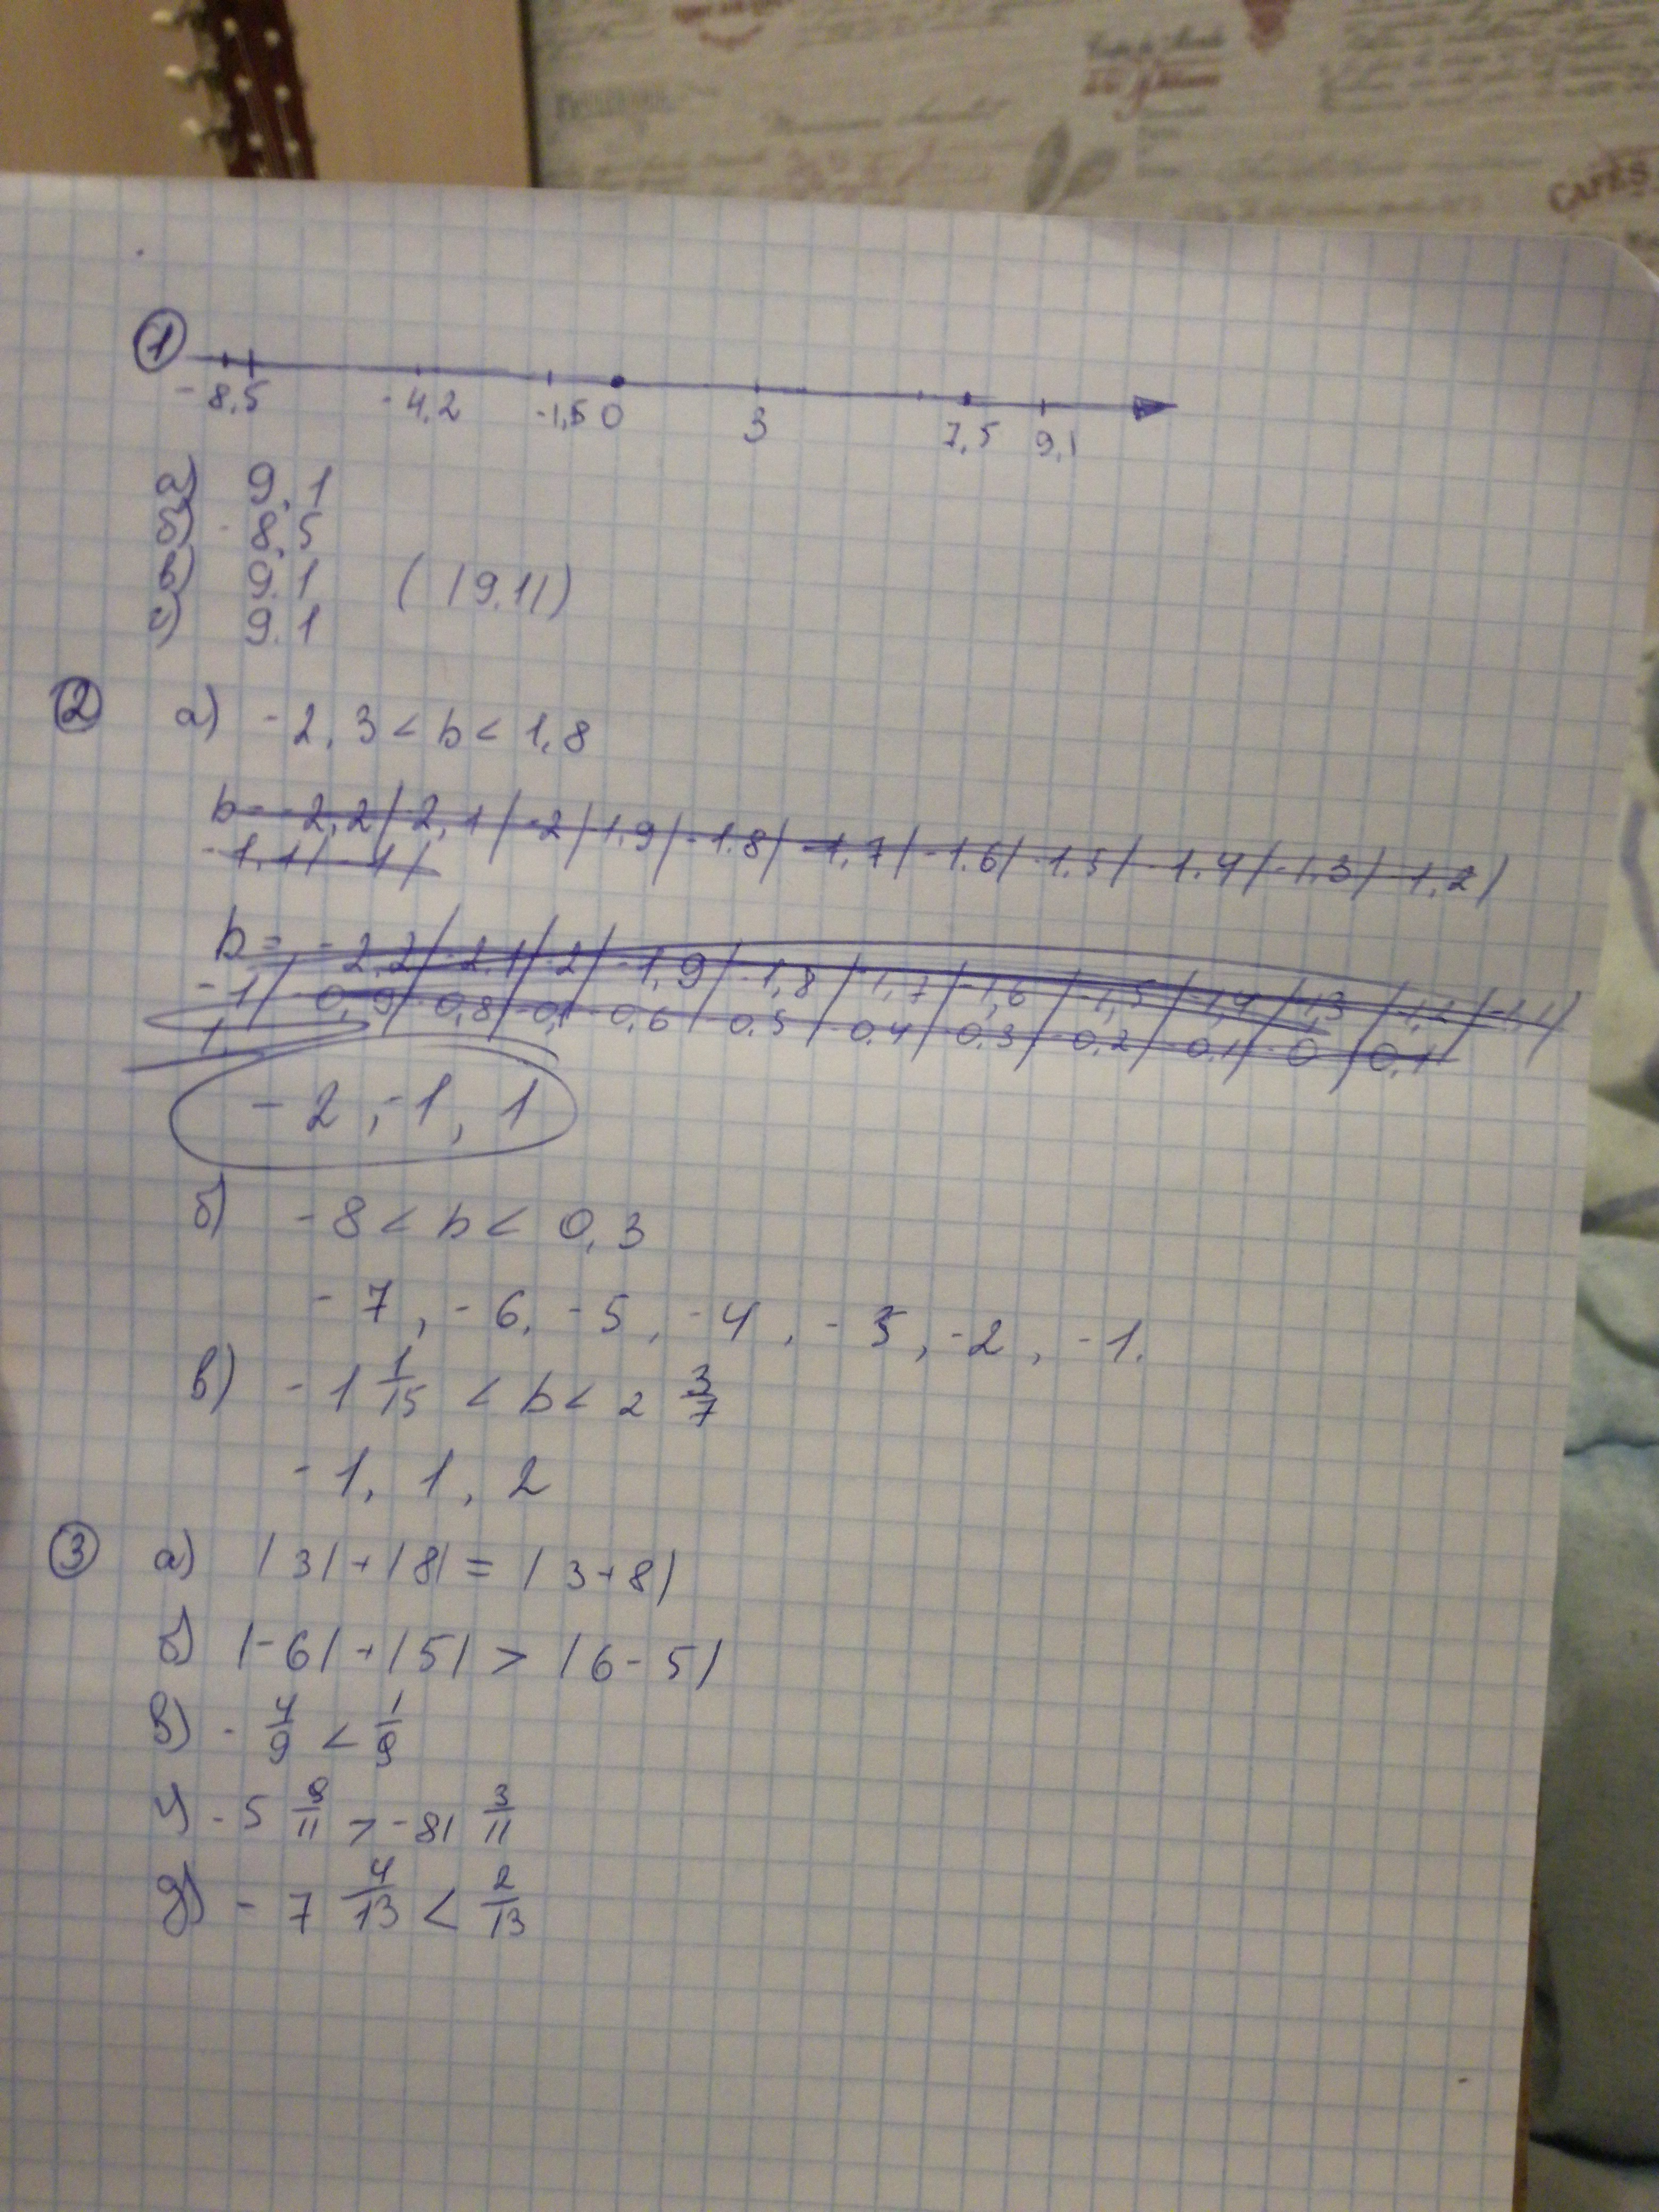 CAFÉS
①
-8,5 -4,2 -1,5 0 3 7,5 9,1
а) 9,1
б) -8,5
в) 9.1 (|9.1|)
г) 9.1
② а) -2,3 < b < 1,8
b= -2,2/-2,1/-2/-1,9/-1.8/-1,7/-1.6/-1.5/-1.4/-1,3/-1,2/
-1,1/-1/
b= -2,2/-2,1/-2/-1,9/-1,8/-1,7/-1,6/-1,5/-1,4/-1,3/-1,2/-1,1/
-1/-0,9/-0,8/-0,7/-0,6/-0,5/-0,4/-0,3/-0,2/-0,1/-0/0,1
1,
-2, -1, 1
б) -8 < b < 0,3
-7, -6, -5, -4, -3, -2, -1.
в) -1 1/15 < b < 2 3/7
-1, 1, 2
③ а) |3|+|8| = |3+8|
б) |-6|+|5| > |6-5|
в) -4/9 < 1/9
г) -5 8/11 > -81 3/11
д) -7 4/13 < 2/13